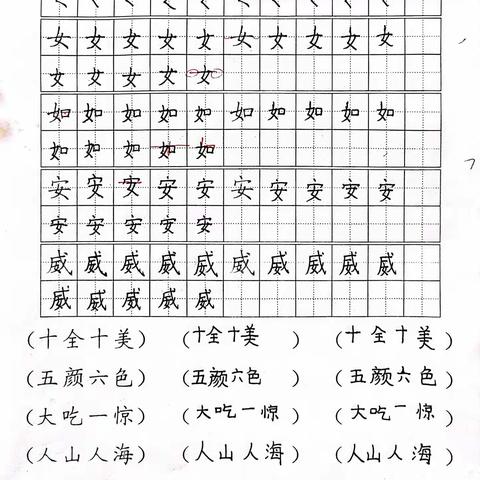 女女女女女女女女女女
女女女女女
如如如如如如如如如如
如如如如如
安安安安安安安安安安
安安安安安
威威威威威威威威威威
威威威威威
(十全十美) (十全十美) (十全十美)
(五颜六色) (五颜六色) (五颜六色)
(大吃一惊) (大吃一惊) (大吃一惊)
(人山人海) (人山人海) (人山人海)